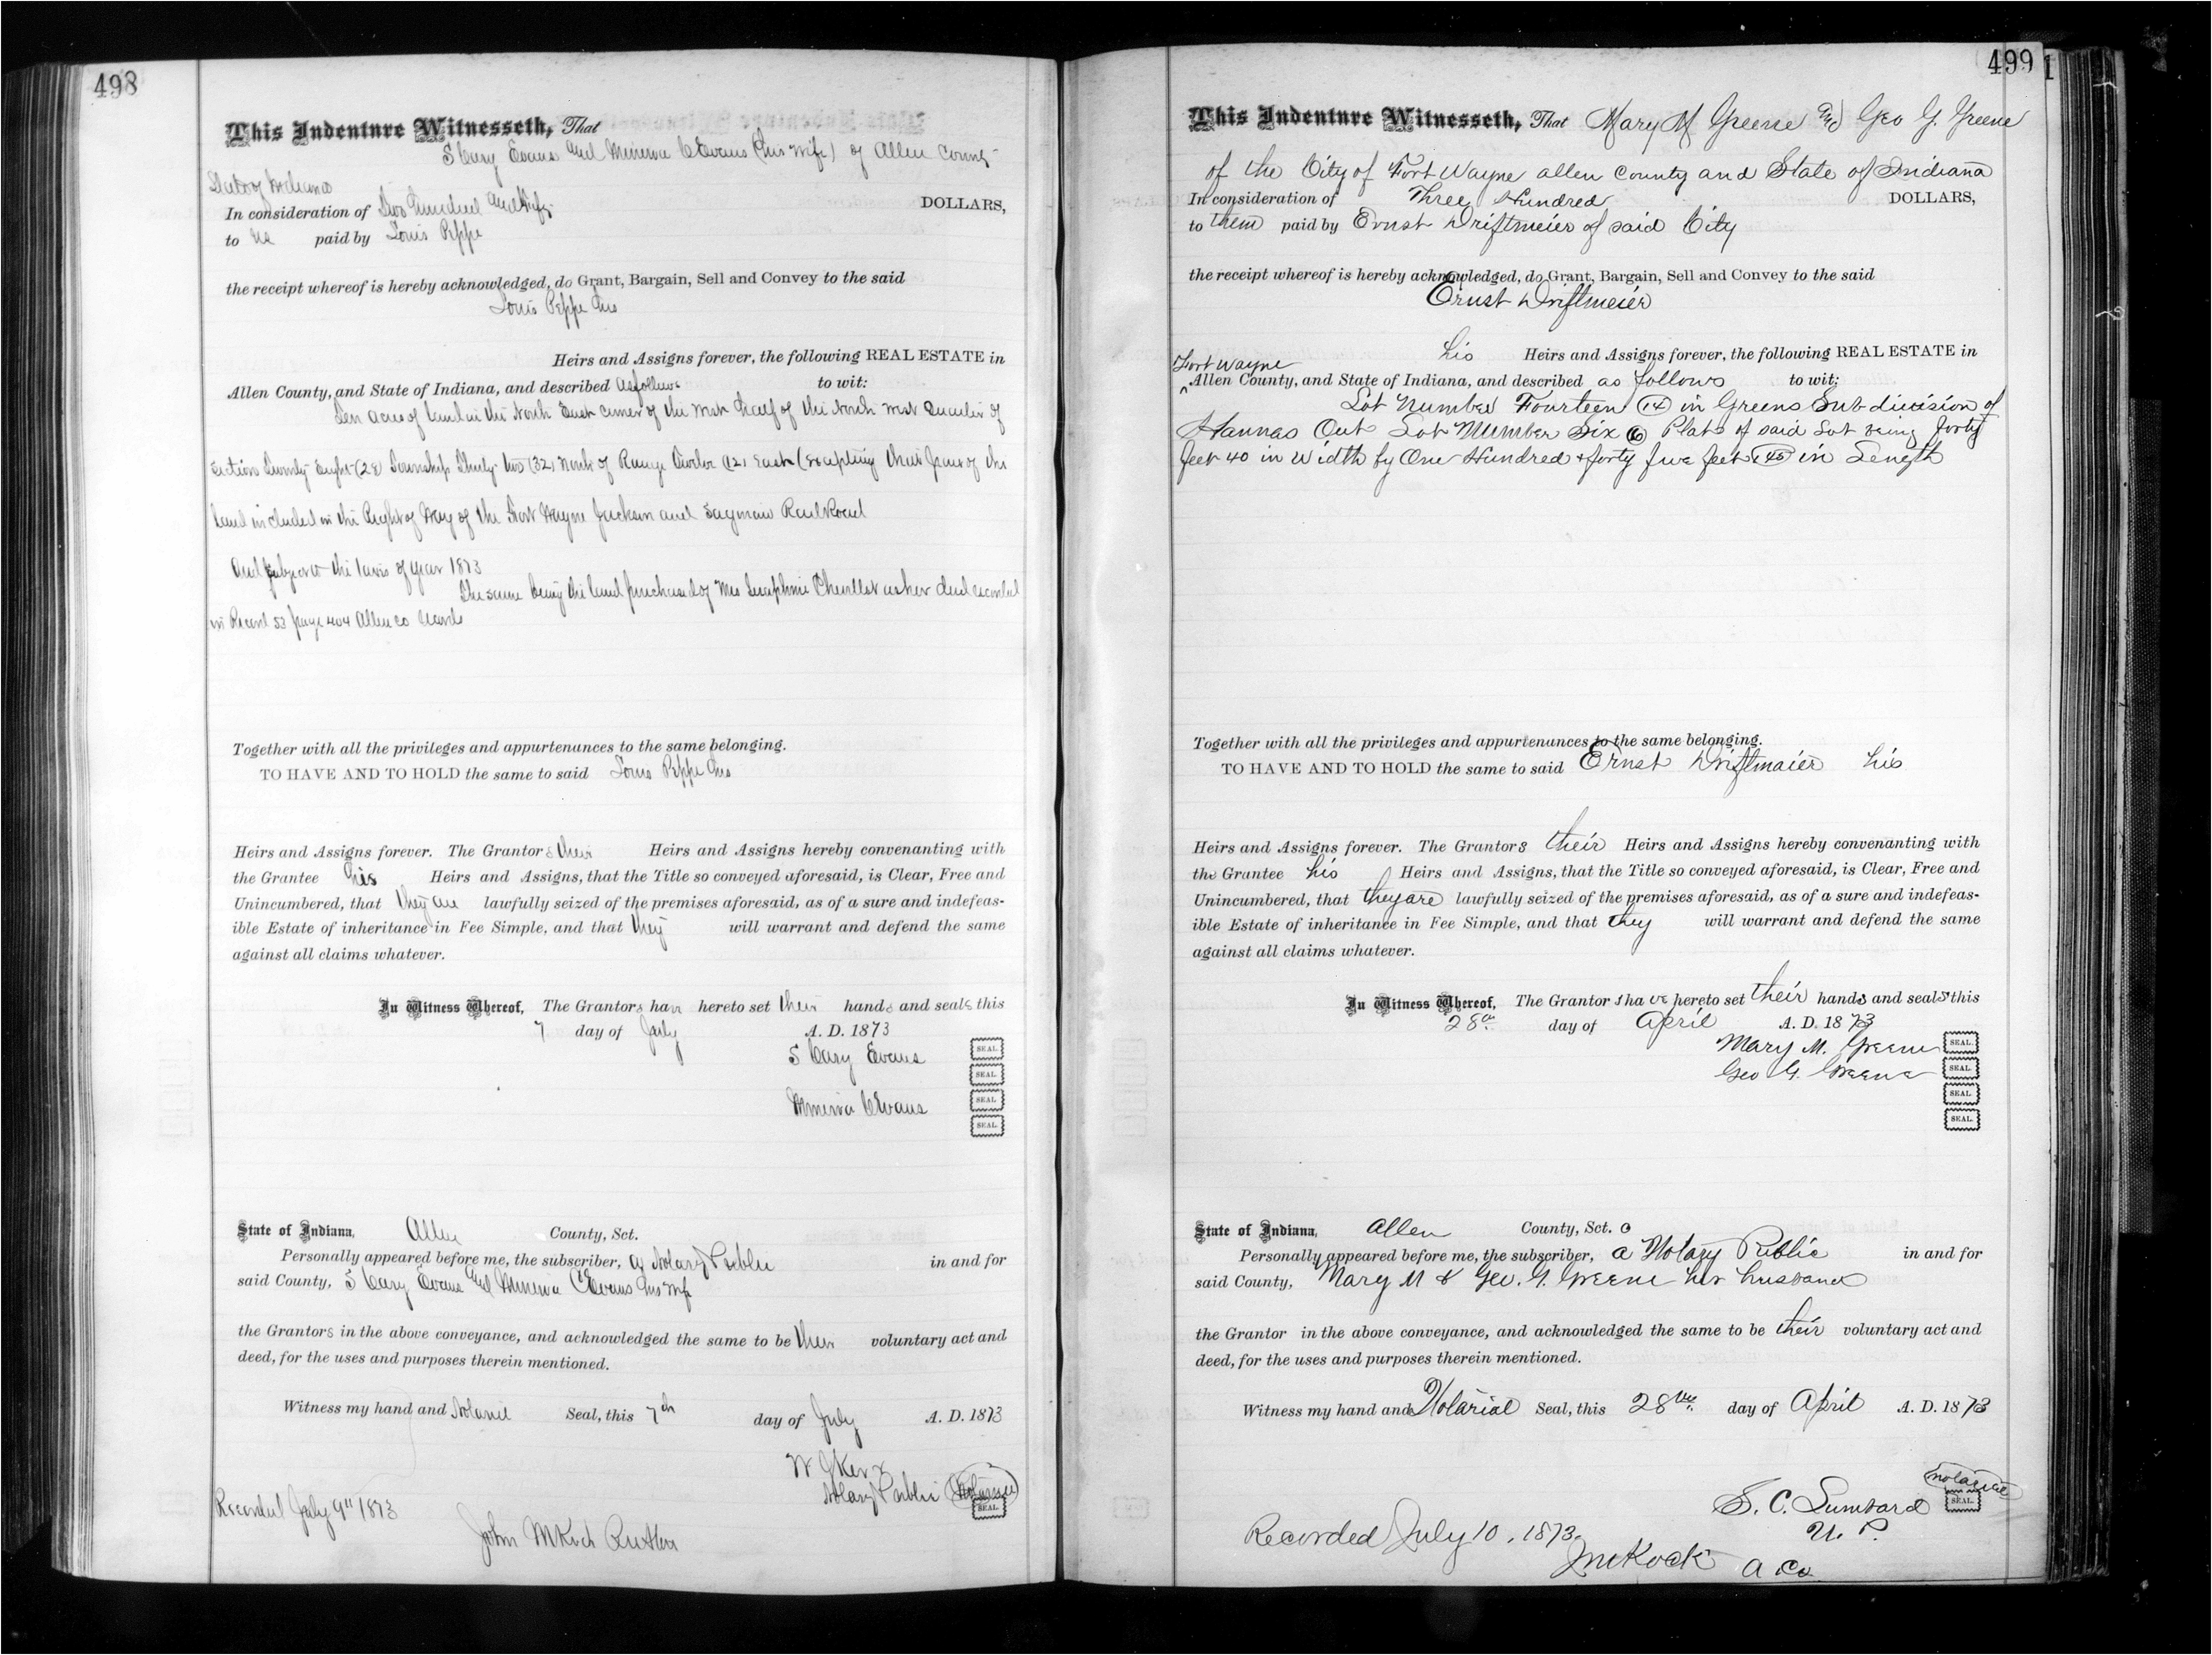 498
This Indenture Witnesseth, That
S Cary Evans and Minerva C Evans (his wife) of Allen County
State of Indiana
In consideration of Two Hundred and Fifty DOLLARS,
to us paid by Louis Peppe
the receipt whereof is hereby acknowledged, do Grant, Bargain, Sell and Convey to the said
Louis Peppe his
Heirs and Assigns forever, the following REAL ESTATE in
Allen County, and State of Indiana, and described as follows to wit:
Ten acres of land in the North East corner of the West half of the North West Quarter of
Section Twenty Eight (28) Township Thirty two (32) North of Range Twelve (12) East (Excepting that part of the
land included in the Right of Way of the Fort Wayne Jackson and Saginaw Rail Road
And subject to the taxes of year 1873
The same being the land purchased of Mrs Seraphine as her deed recorded
in Record 53 page 404 Allen co
Together with all the privileges and appurtenances to the same belonging.
TO HAVE AND TO HOLD the same to said Louis Peppe his
Heirs and Assigns forever. The Grantors their Heirs and Assigns hereby convenanting with
the Grantee his Heirs and Assigns, that the Title so conveyed aforesaid, is Clear, Free and
Unincumbered, that they are lawfully seized of the premises aforesaid, as of a sure and indefeas-
ible Estate of inheritance in Fee Simple, and that they will warrant and defend the same
against all claims whatever.
In Witness Whereof, The Grantors have hereto set their hands and seals this
7 day of July A. D. 1873
S Cary Evans SEAL.
SEAL.
Minerva C Evans SEAL.
SEAL.
State of Indiana, Allen County, Sct.
Personally appeared before me, the subscriber, a Notary Public in and for
said County, S Cary Evans and Minerva C Evans his wife
the Grantors in the above conveyance, and acknowledged the same to be their voluntary act and
deed, for the uses and purposes therein mentioned.
Witness my hand and Notarial Seal, this 7th day of July A. D. 1873
Notary Public SEAL.
Recorded July 9" 1873
John M Koch
499
This Indenture Witnesseth, That Mary M Greene and Geo G. Greene
of the City of Fort Wayne allen County and State of Indiana
In consideration of Three Hundred DOLLARS,
to them paid by Ernst Driftmeier of said City
the receipt whereof is hereby acknowledged, do Grant, Bargain, Sell and Convey to the said
Ernst Driftmeier
his Heirs and Assigns forever, the following REAL ESTATE in
Fort Wayne
^ Allen County, and State of Indiana, and described as follows to wit:
Lot Number Fourteen (14) in Greens Subdivision of
Hannas Out Lot Number Six (6) Plat of said Lot being forty
feet 40 in width by One Hundred & forty five feet (145) in Length
Together with all the privileges and appurtenances to the same belonging.
TO HAVE AND TO HOLD the same to said Ernst Driftmaier his
Heirs and Assigns forever. The Grantors their Heirs and Assigns hereby convenanting with
the Grantee his Heirs and Assigns, that the Title so conveyed aforesaid, is Clear, Free and
Unincumbered, that they are lawfully seized of the premises aforesaid, as of a sure and indefeas-
ible Estate of inheritance in Fee Simple, and that they will warrant and defend the same
against all claims whatever.
In Witness Whereof, The Grantors have hereto set their hands and seals this
28th day of April A. D. 1873
Mary M. Greene SEAL.
Geo G. Greene SEAL.
SEAL.
SEAL.
State of Indiana, Allen County, Sct.
Personally appeared before me, the subscriber, a Notary Public in and for
said County, Mary M & Geo. G. Greene her husband
the Grantor in the above conveyance, and acknowledged the same to be their voluntary act and
deed, for the uses and purposes therein mentioned.
Witness my hand and Notarial Seal, this 28th day of April A. D. 1873
notarial
S. C. Lumbard SEAL.
N. P.
Recorded July 10, 1873.
JM Koch